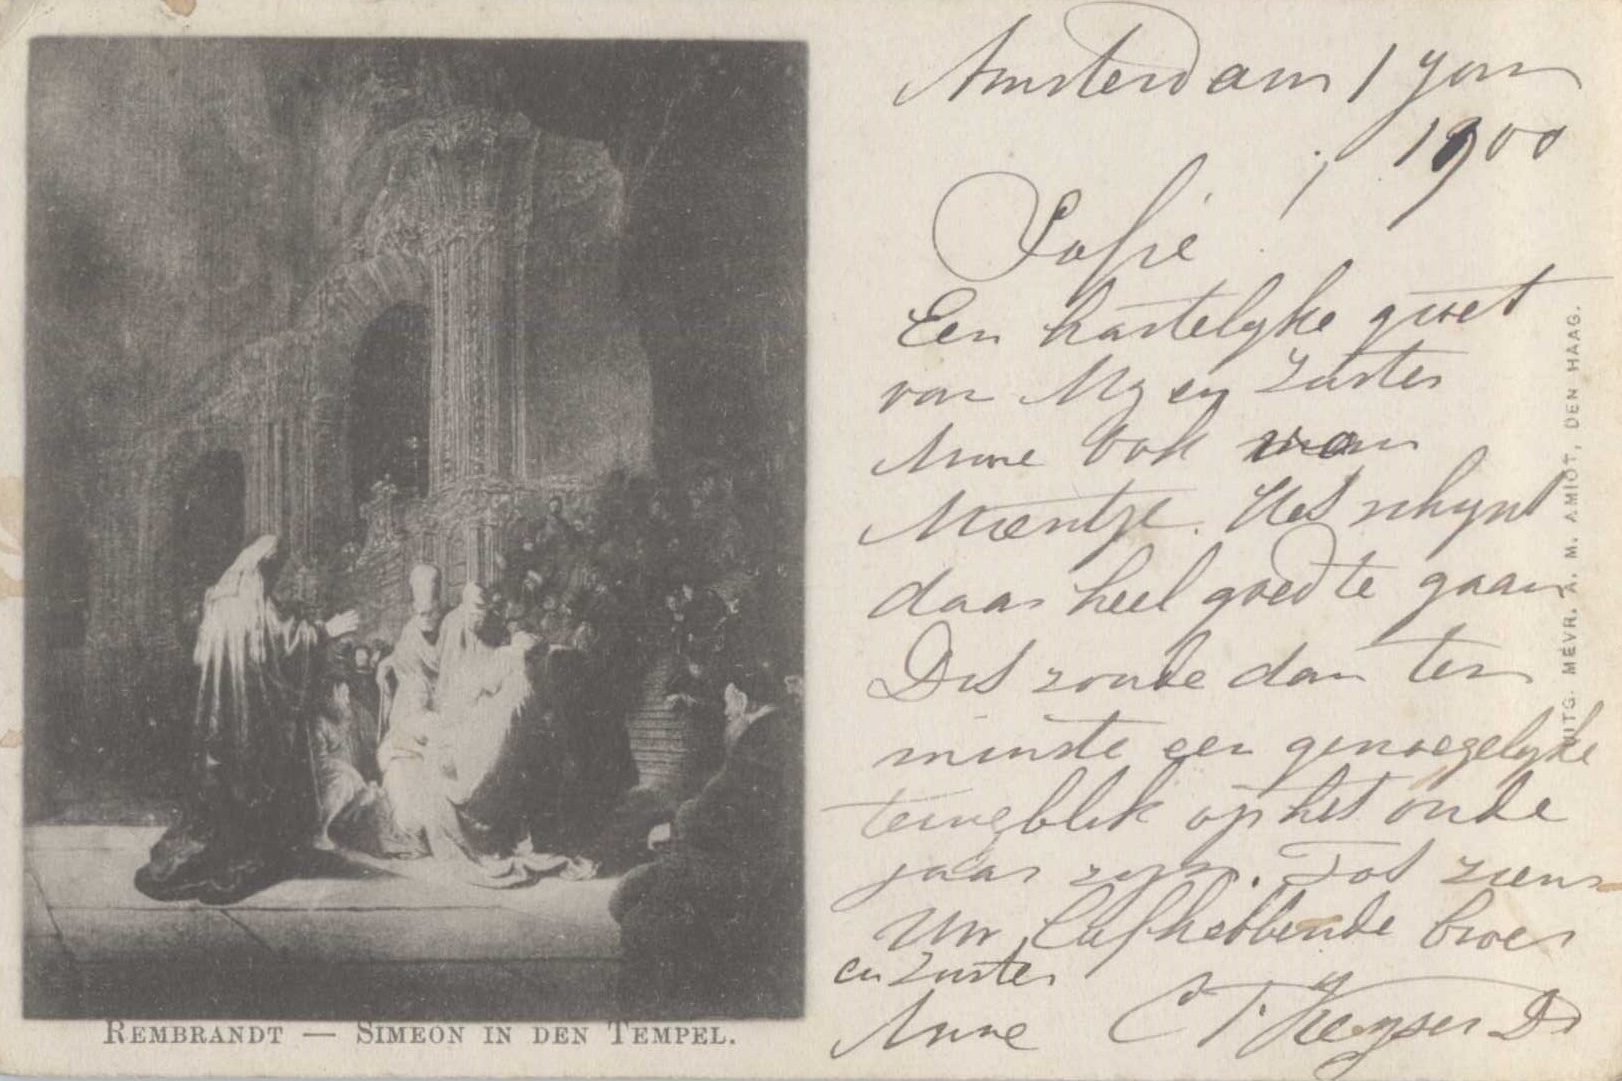 Amsterdam 1 Jan
1900
Sofie
Een hartelyke groet
van My en Zuster
Anne ook van
Moentje. Het schynt
daar heel goed te gaan
Dit zoude dan ten
minste een genoegelyke
terugblik op het oude
jaar zyn. Tot ziens
Uw liefhebbende broer
en Zuster
Anne C T Keyser Dz
REMBRANDT — SIMEON IN DEN TEMPEL.
UITG. MEVR. A. M. AMIOT, DEN HAAG.